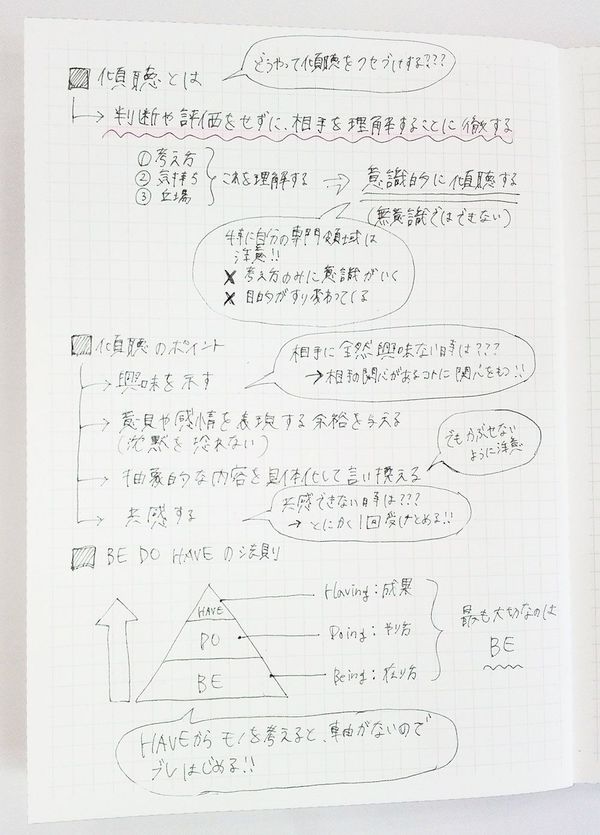 傾聴とは
どうやって傾聴をクセづけする???
判断や評価をせずに、相手を理解することに徹する
① 考え方
② 気持ち
③ 立場
これを理解する
意識的に傾聴する
(無意識ではできない)
特に自分の専門領域は
注意!!
✗ 考え方のみに意識がいく
✗ 目的がすり変わってる
傾聴のポイント
相手に全然興味ない時は???
→相手の関心があるコトに関心をもつ!!
興味を示す
意見や感情を表現する余裕を与える
(沈黙を恐れない)
でもかぶせない
ように注意
抽象的な内容を具体化して言い換える
共感できない時は???
→ とにかく1回受けとめる!!
共感する
BE DO HAVE の法則
HAVE
DO
BE
Having:成果
Doing:やり方
Being:在り方
最も大切なのは
BE
HAVEからモノを考えると、軸がないので
ブレはじめる!!